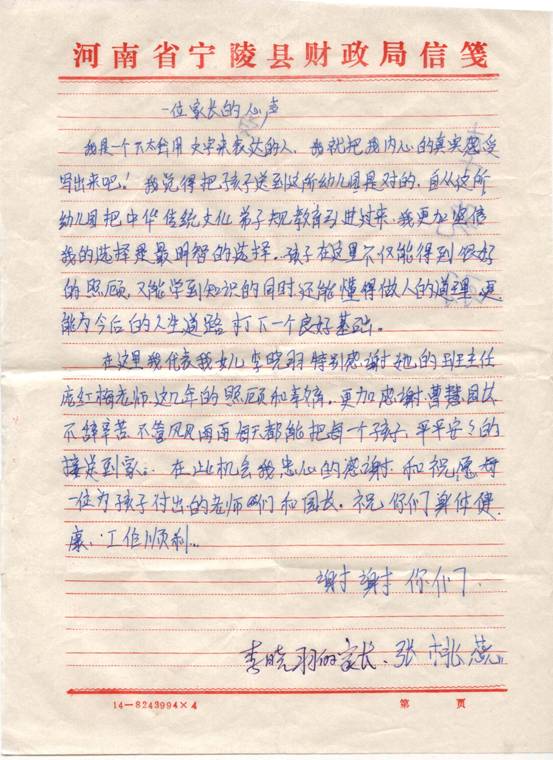 河南省宁陵县财政局信笺
一位家长的心声
我是一个不太会用文字来表达的人，我就把我内心的真实感受
写出来吧！我觉得把孩子送到这所幼儿园是对的，自从这所
幼儿园把中华传统文化弟子规教育引进过来，我更加坚信
我的选择是最明智的选择。孩子在这里不仅能得到很好
的照顾，又能学到知识的同时还能懂得做人的道理，更
能为今后的人生道路打下一个良好基础。
在这里我代表我女儿李晓羽特别感谢她的班主任
庞红梅老师这几年的照顾和辛勤，更加感谢曹慧园长
不辞辛苦，不管风风雨雨每天都能把每一个孩子，平平安安的
接送到家。在此机会我忠心的感谢和祝愿每
一位为孩子付出的老师们和园长。祝，你们身体健
康，工作顺利...
谢谢你们
李晓羽的家长：张
14—8243994×4
第 页